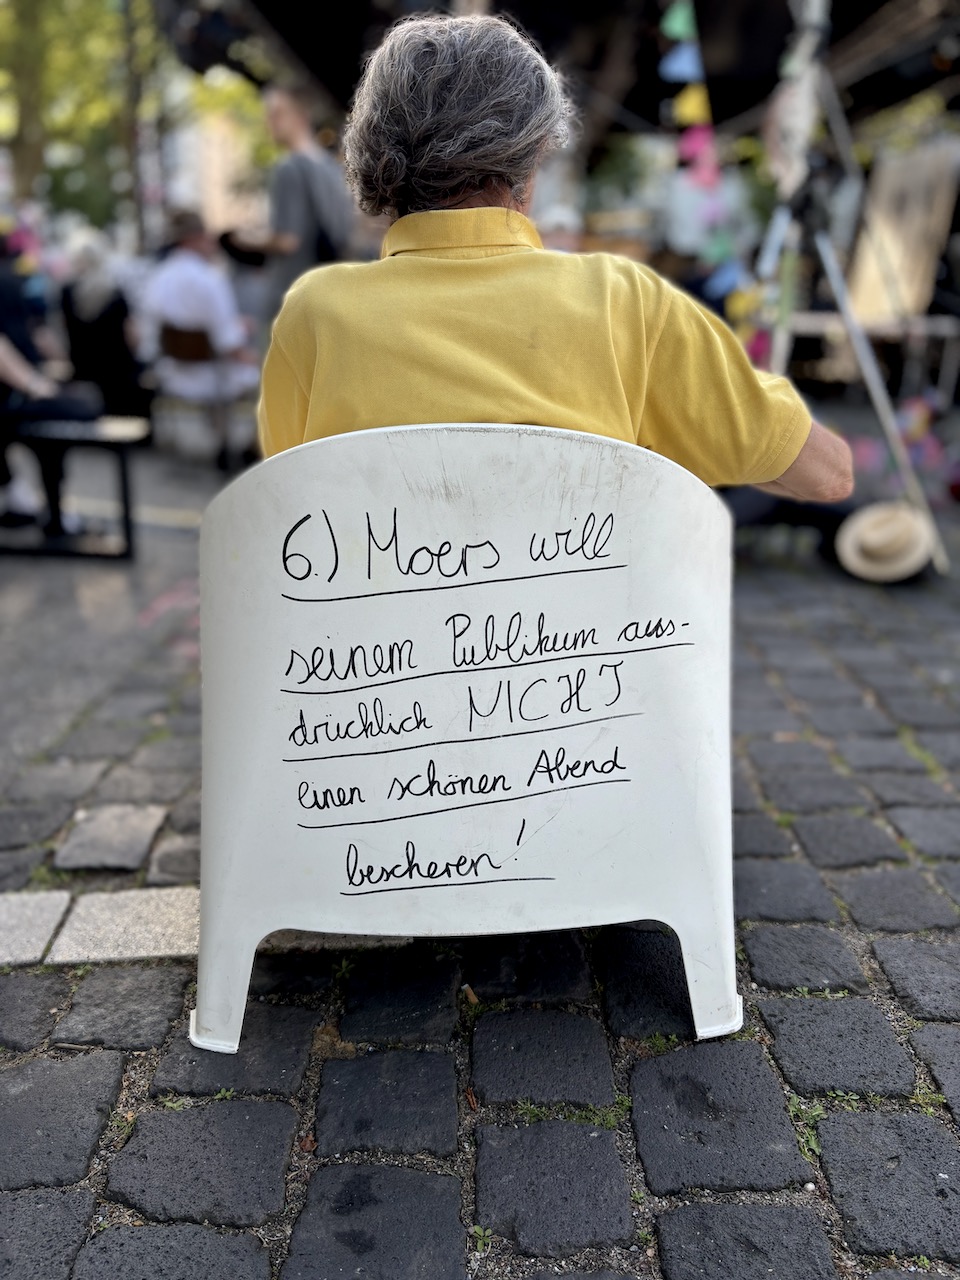 6.) Moers will
seinem Publikum aus-
drücklich NICHT
einen schönen Abend
bescheren!